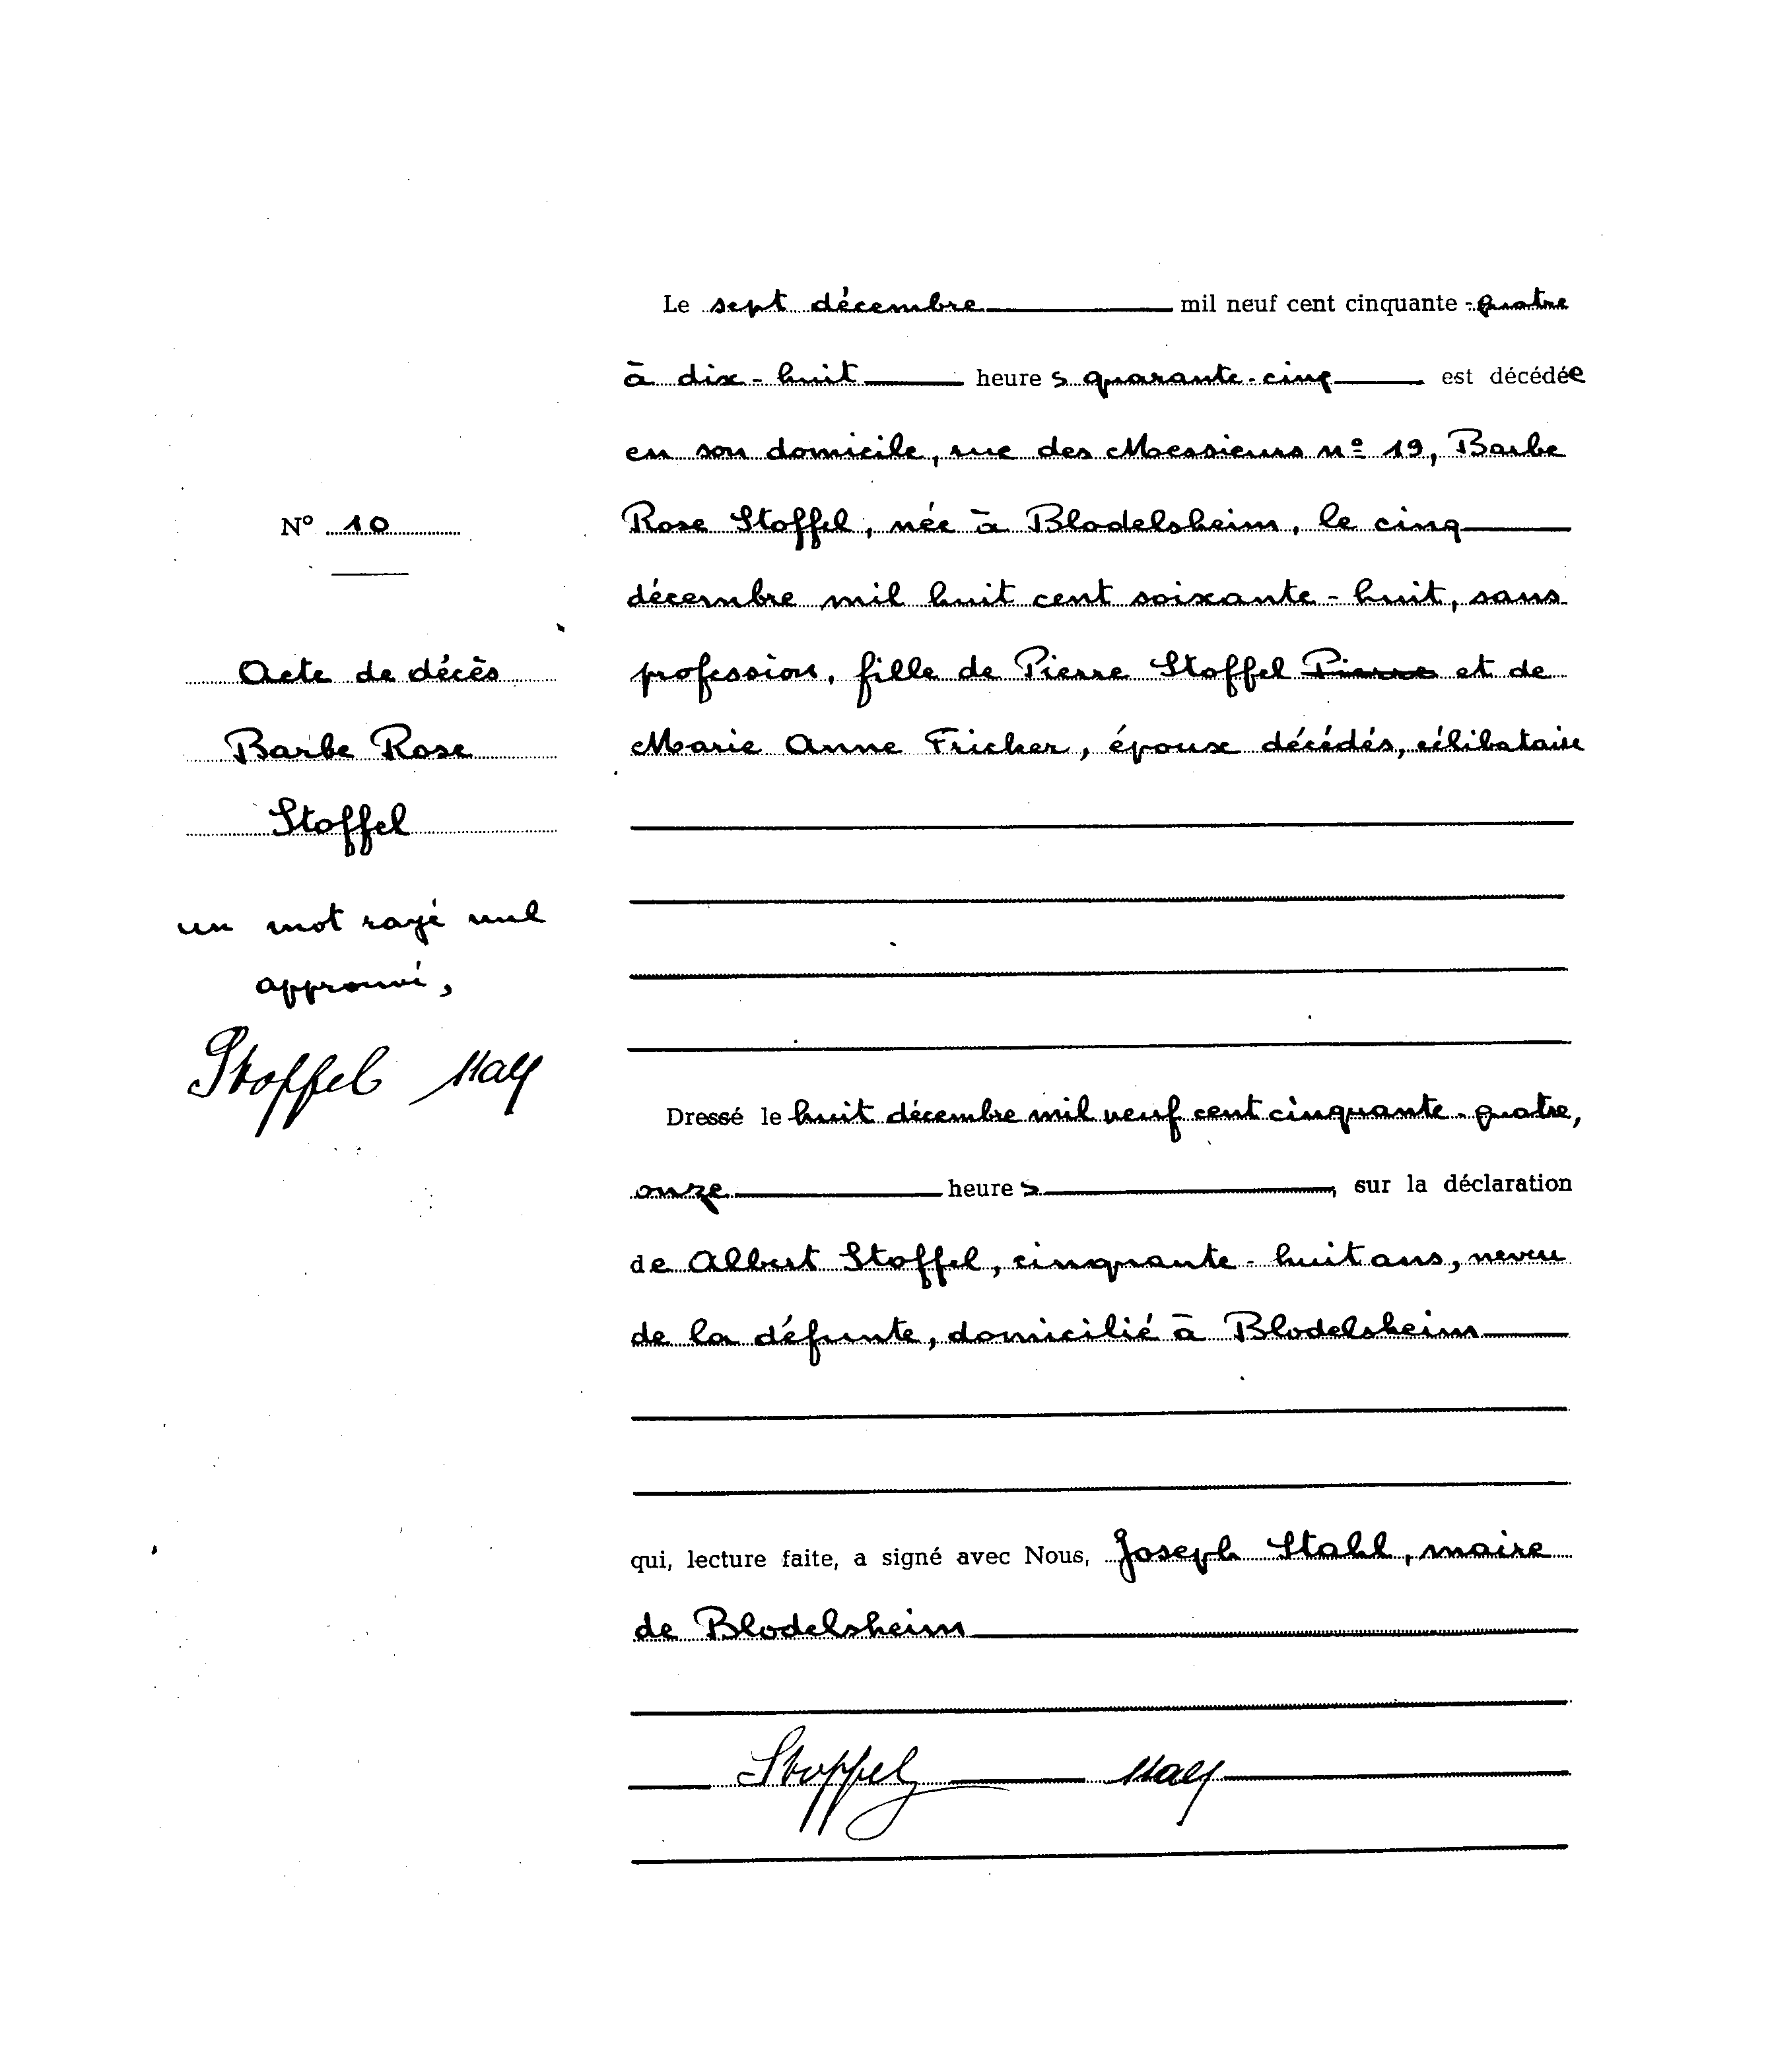 N° 10
Acte de décès
Barbe Rose
Stoffel
un mot rayé nul
approuvé,
Stoffel Stahl
Le sept décembre mil neuf cent cinquante-quatre
à dix-huit heures quarante-cinq est décédée
en son domicile, rue des Messieurs n° 19, Barbe
Rose Stoffel, née à Blodelsheim, le cinq
décembre mil huit cent soixante-huit, sans
profession, fille de Pierre Stoffel Pierre et de
Marie Anne Fricker, époux décédés, célibataire
Dressé le huit décembre mil neuf cent cinquante-quatre,
onze heures, sur la déclaration
de Albert Stoffel, cinquante-huit ans, neveu
de la défunte, domicilié à Blodelsheim
qui, lecture faite, a signé avec Nous, Joseph Stahl, maire
de Blodelsheim
Stoffel Stahl